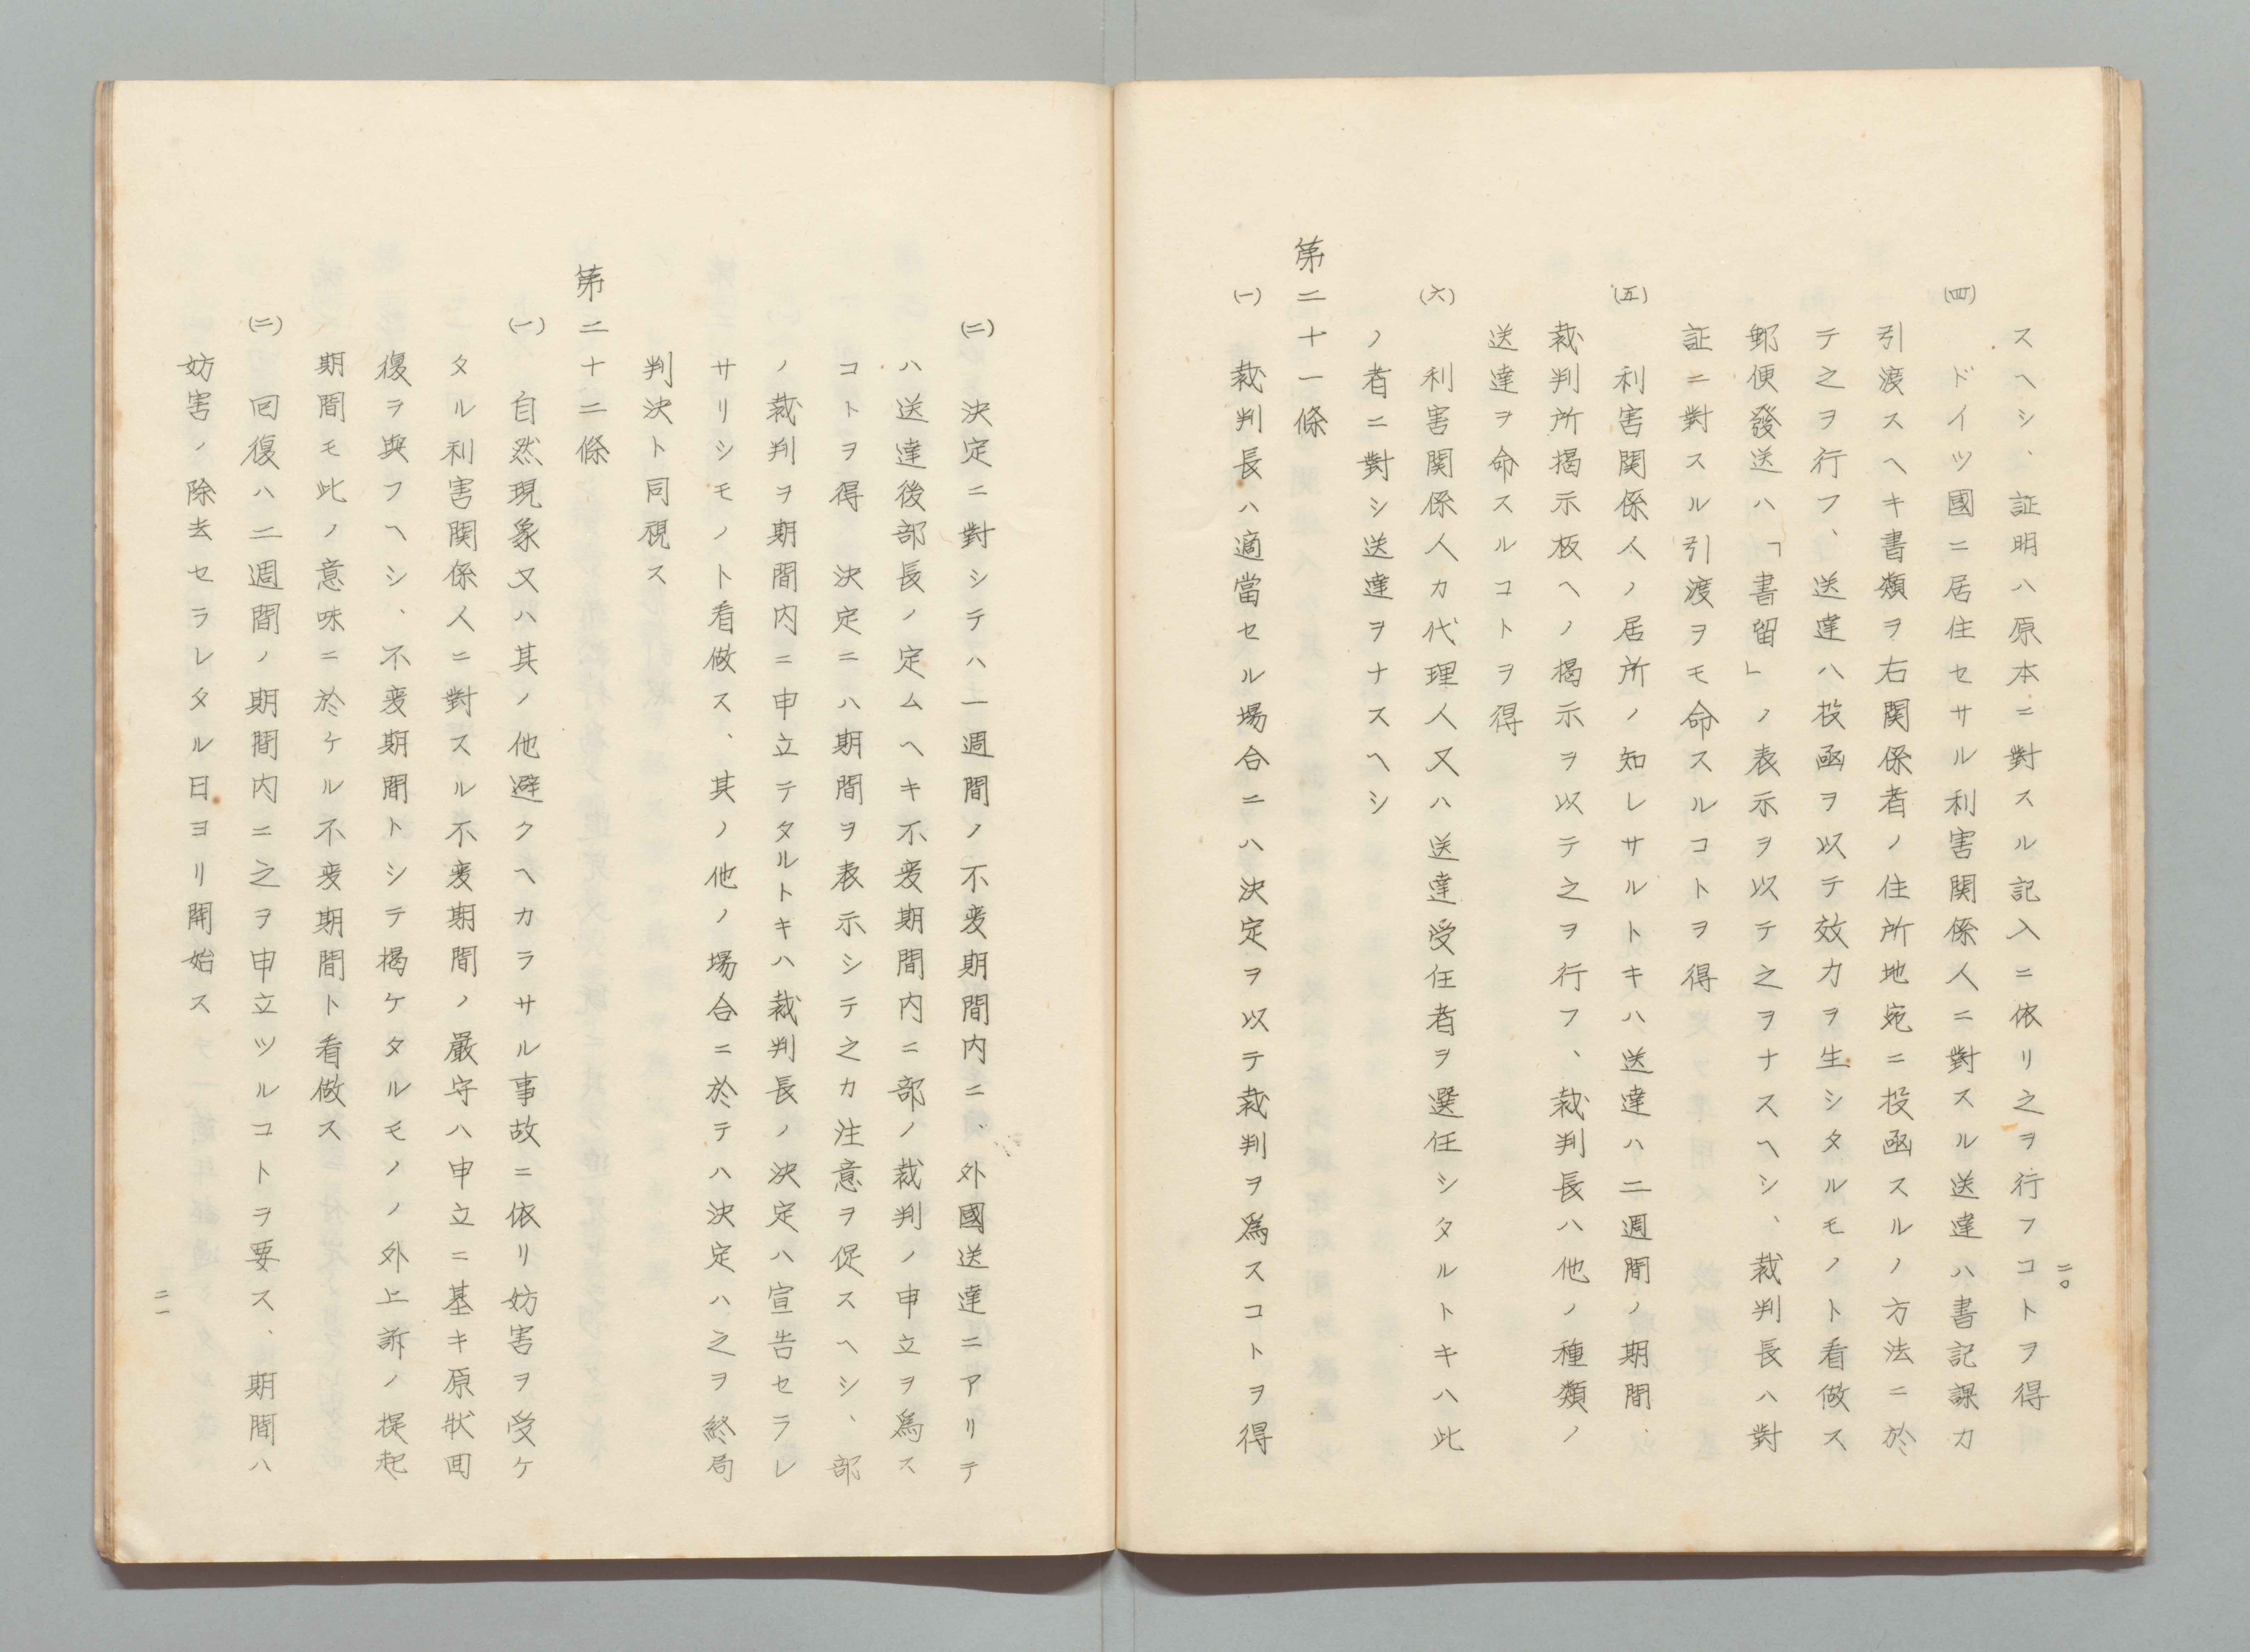 スヘシ、証明ハ原本ニ對スル記入ニ依リ之ヲ行フコトヲ得
(四) ドイツ國ニ居住セサル利害関係人ニ對スル送達ハ書記課カ
引渡スヘキ書類ヲ右関係者ノ住所地宛ニ投函スルノ方法ニ於
テ之ヲ行フ、送達ハ投函ヲ以テ效力ヲ生シタルモノト看做ス
郵便發送ハ「書留」ノ表示ヲ以テ之ヲナスヘシ、裁判長ハ對
証ニ對スル引渡ヲモ命スルコトヲ得
(五) 利害関係人ノ居所ノ知レサルトキハ送達ハ二週間ノ期間、
裁判所揭示板ヘノ揭示ヲ以テ之ヲ行フ、裁判長ハ他ノ種類ノ
送達ヲ命スルコトヲ得
(六) 利害関係人カ代理人又ハ送達受任者ヲ選任シタルトキハ此
ノ者ニ對シ送達ヲナスヘシ
第二十一條
(一) 裁判長ハ適當セル場合ニハ決定ヲ以テ裁判ヲ爲スコトヲ得
二〇
(二) 決定ニ對シテハ一週間ノ不変期間内ニ、外國送達ニアリテ
ハ送達後部長ノ定ムヘキ不変期間内ニ部ノ裁判ノ申立ヲ爲ス
コトヲ得 決定ニハ期間ヲ表示シテ之カ注意ヲ促スヘシ、部
ノ裁判ヲ期間内ニ申立テタルトキハ裁判長ノ決定ハ宣告セラレ
サリシモノト看做ス、其ノ他ノ場合ニ於テハ決定ハ之ヲ終局
判決ト同視ス
第二十二條
(一) 自然現象又ハ其ノ他避クヘカラサル事故ニ依リ妨害ヲ受ケ
タル利害関係人ニ對スル不変期間ノ嚴守ハ申立ニ基キ原狀囘
復ヲ與フヘシ、不変期間トシテ揭ケタルモノノ外上訴ノ提起
期間モ此ノ意味ニ於ケル不変期間ト看做ス
(二) 回復ハ二週間ノ期間内ニ之ヲ申立ツルコトヲ要ス、期間ハ
妨害ノ除去セラレタル日ヨリ開始ス
二一